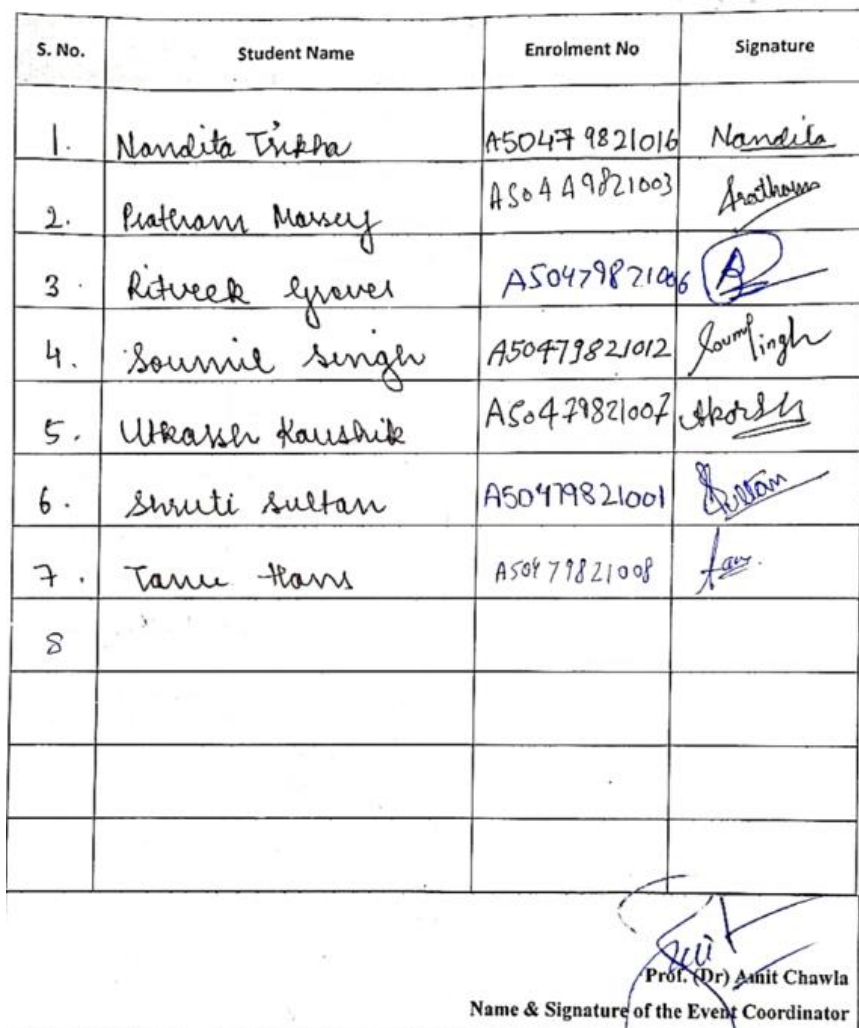 S. No. Student Name Enrolment No Signature
1. Nandita Trikha A50479821016 Nandita
2. Pratham Massey A504A9821003 Pratham
3. Ritveek Grover A50479821006
4. Soumil Singh A50479821012 Soumil Singh
5. Utkarsh Kaushik A50479821007
6. Shruti Sultan A50479821001 Sultan
7. Tanu Hans A50479821008
8
Prof. (Dr) Amit Chawla
Name & Signature of the Event Coordinator